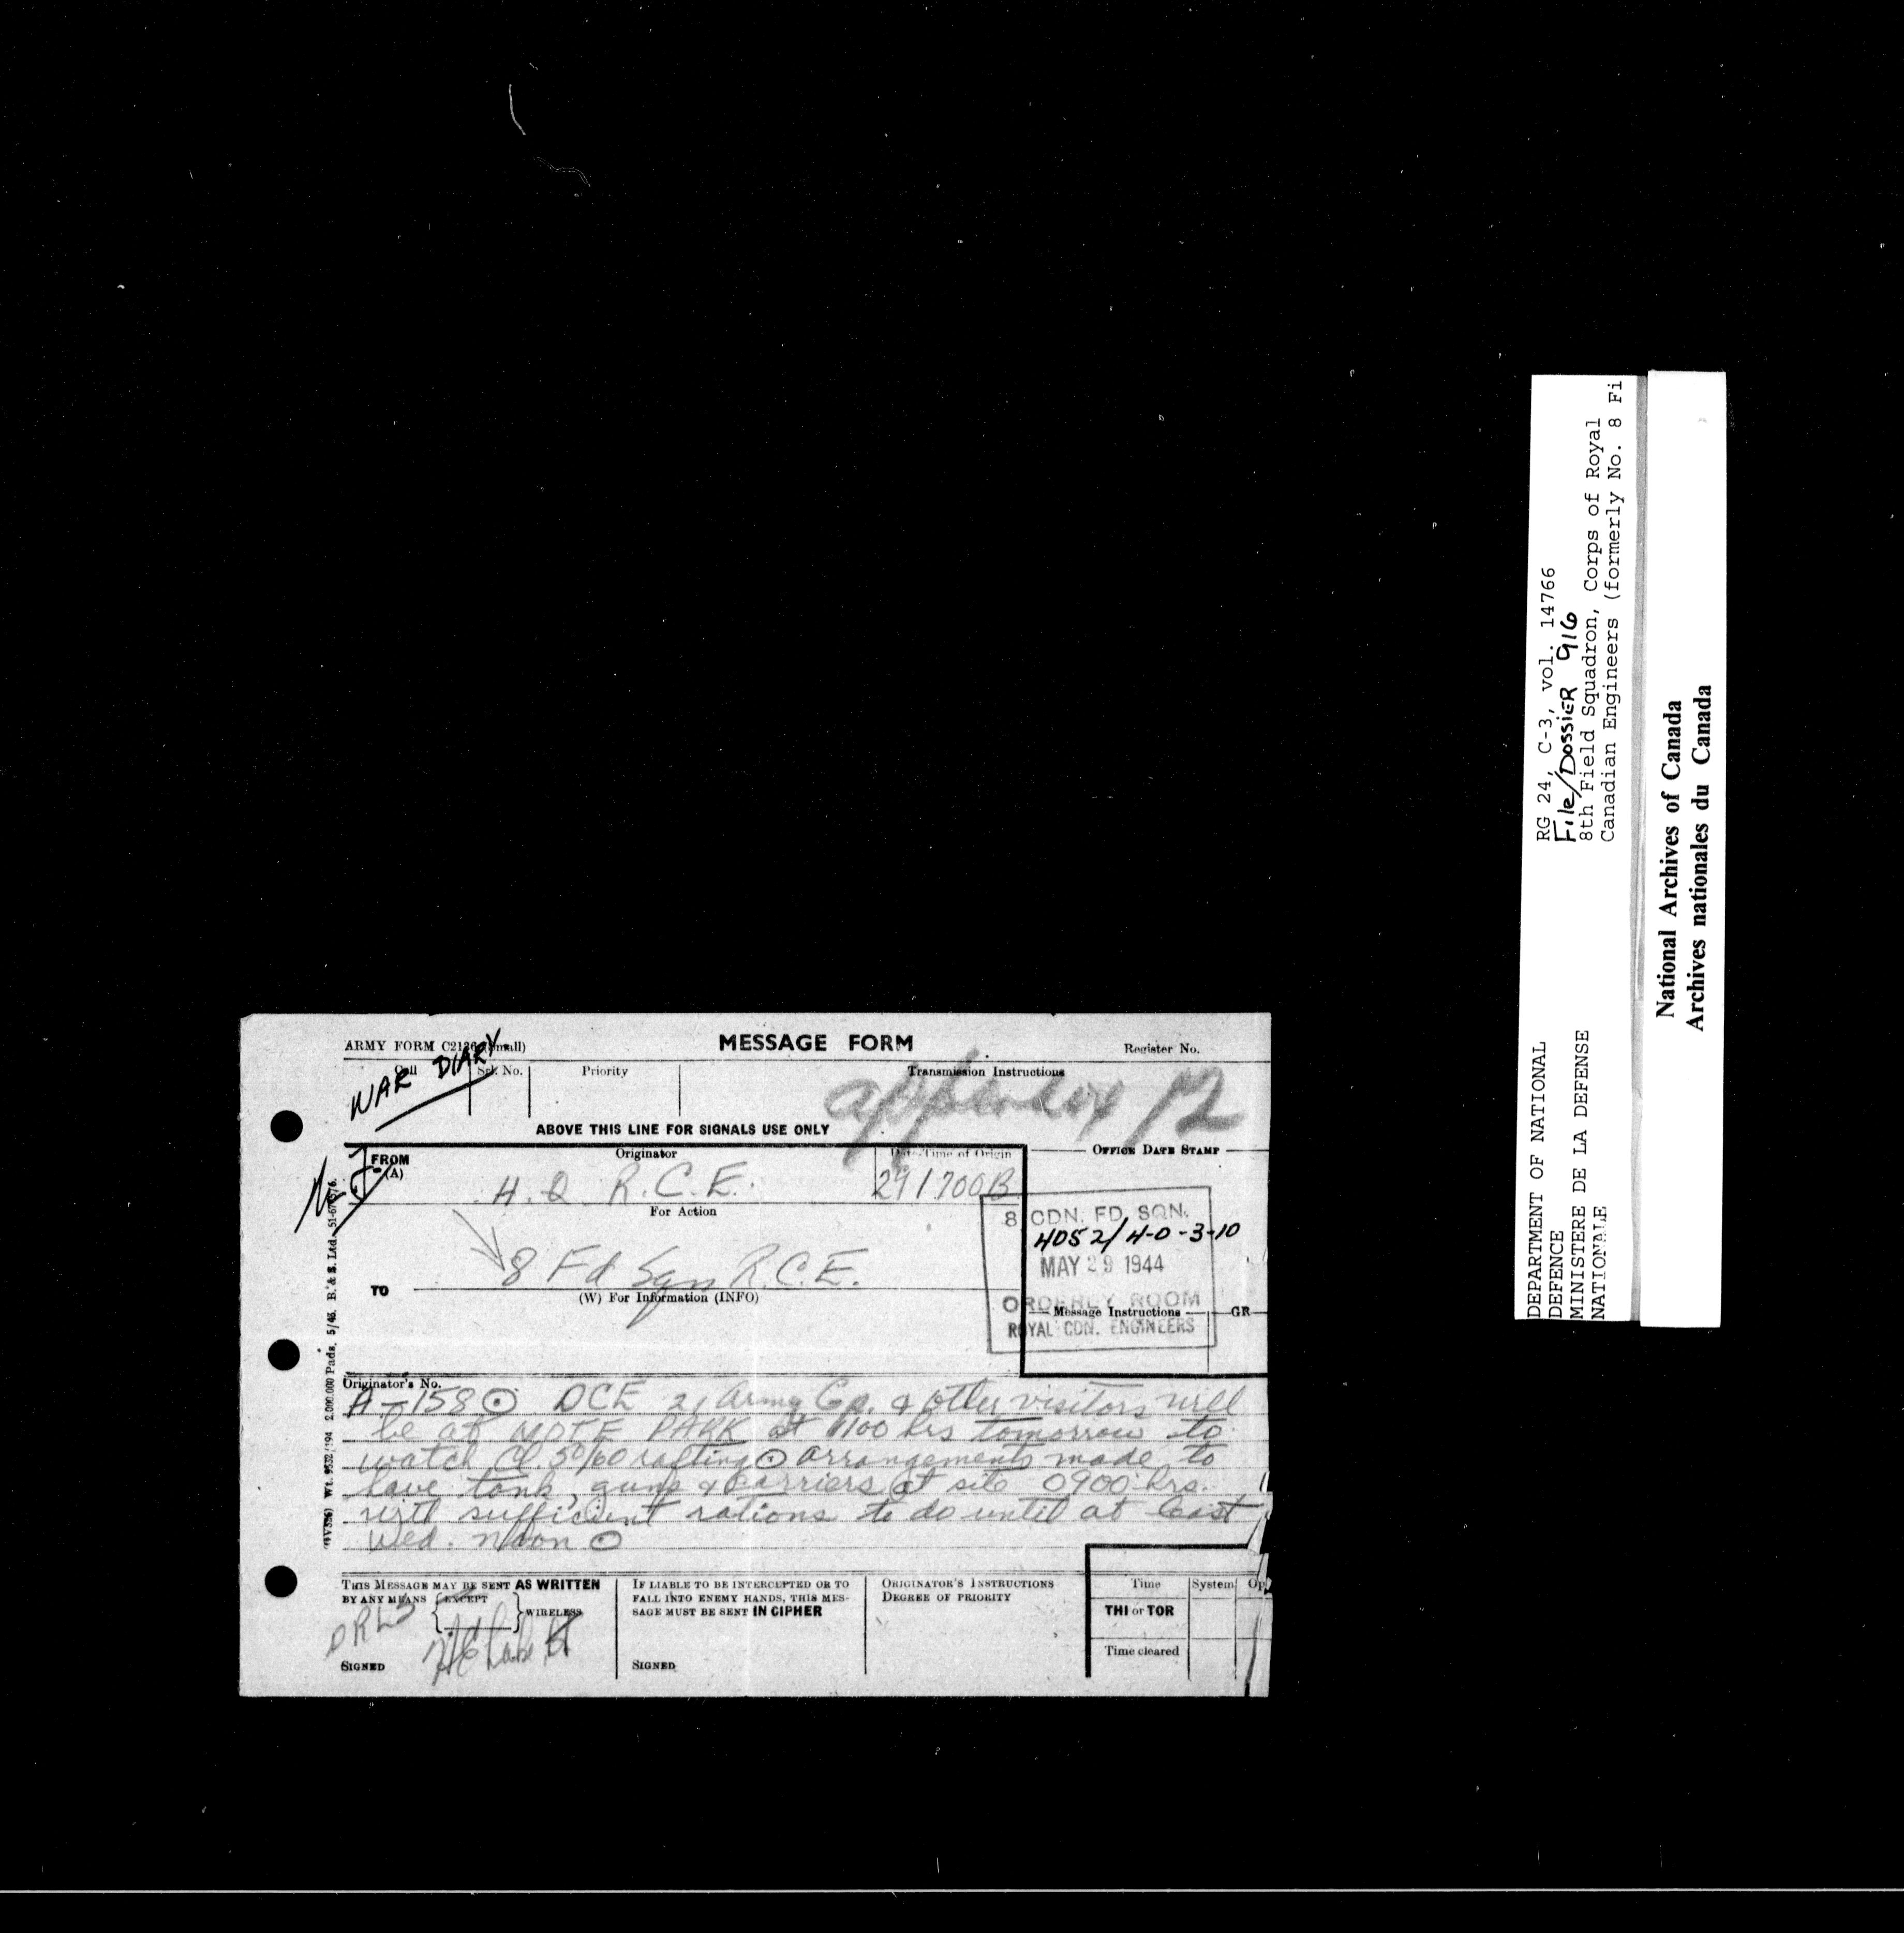 ARMY FORM C2136 (Small)
MESSAGE FORM
Register No.
WAR DIARY
Call
Srl. No.
Priority
Transmission Instructions
appendix 12
ABOVE THIS LINE FOR SIGNALS USE ONLY
FROM
(A)
Originator
Date-Time of Origin
OFFICE DATE STAMP
H.Q R.C.E.
291700B
For Action
8 CDN. FD. SQN.
4DS 2/4-0-3-10
MAY 29 1944
ORDERLY ROOM
ROYAL CDN. ENGINEERS
8 Fd Sqn R.C.E.
TO
(W) For Information (INFO)
Message Instructions
GR
Originator's No.
A-158 ⊙ DCE 21 Army Gp. & other visitors will
be at MOTE PARK at 1100 hrs tomorrow to
watch Cl. 50/60 rafting ⊙ arrangements made to
have tank, guns & carriers at site 0900 hrs.
with sufficient rations to do until at least
Wed. noon ⊙
THIS MESSAGE MAY BE SENT AS WRITTEN
BY ANY MEANS
EXCEPT
WIRELESS
DRLS
SIGNED
IF LIABLE TO BE INTERCEPTED OR TO
FALL INTO ENEMY HANDS, THIS MES-
SAGE MUST BE SENT IN CIPHER
SIGNED
ORIGINATOR'S INSTRUCTIONS
DEGREE OF PRIORITY
Time
System
Op.
THI or TOR
Time cleared
Wt. 9532/194 2,000,000 Pads. 5/43. B. & S. Ltd.
RG 24, C-3, vol. 14766
File/DOSSIER 916
8th Field Squadron, Corps of Royal
Canadian Engineers (formerly No. 8 Fi
DEPARTMENT OF NATIONAL
DEFENCE
MINISTERE DE LA DEFENSE
NATIONALE
National Archives of Canada
Archives nationales du Canada